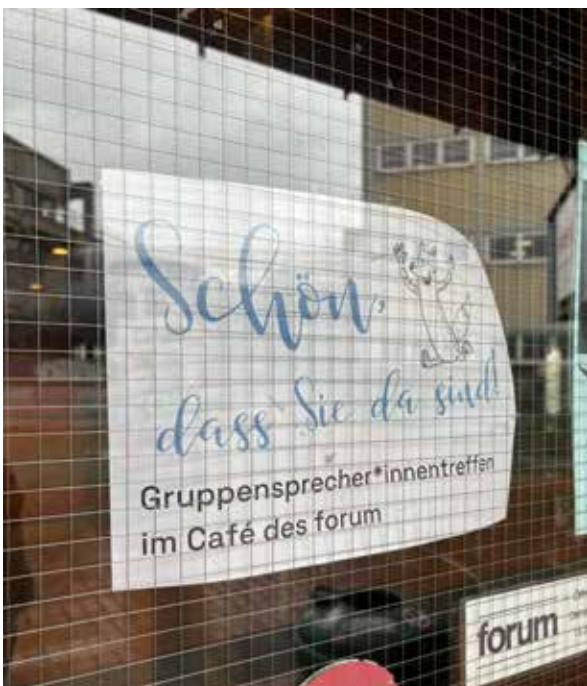 Schön,
dass Sie da sind!
Gruppensprecher*innentreffen
im Café des forum
forum